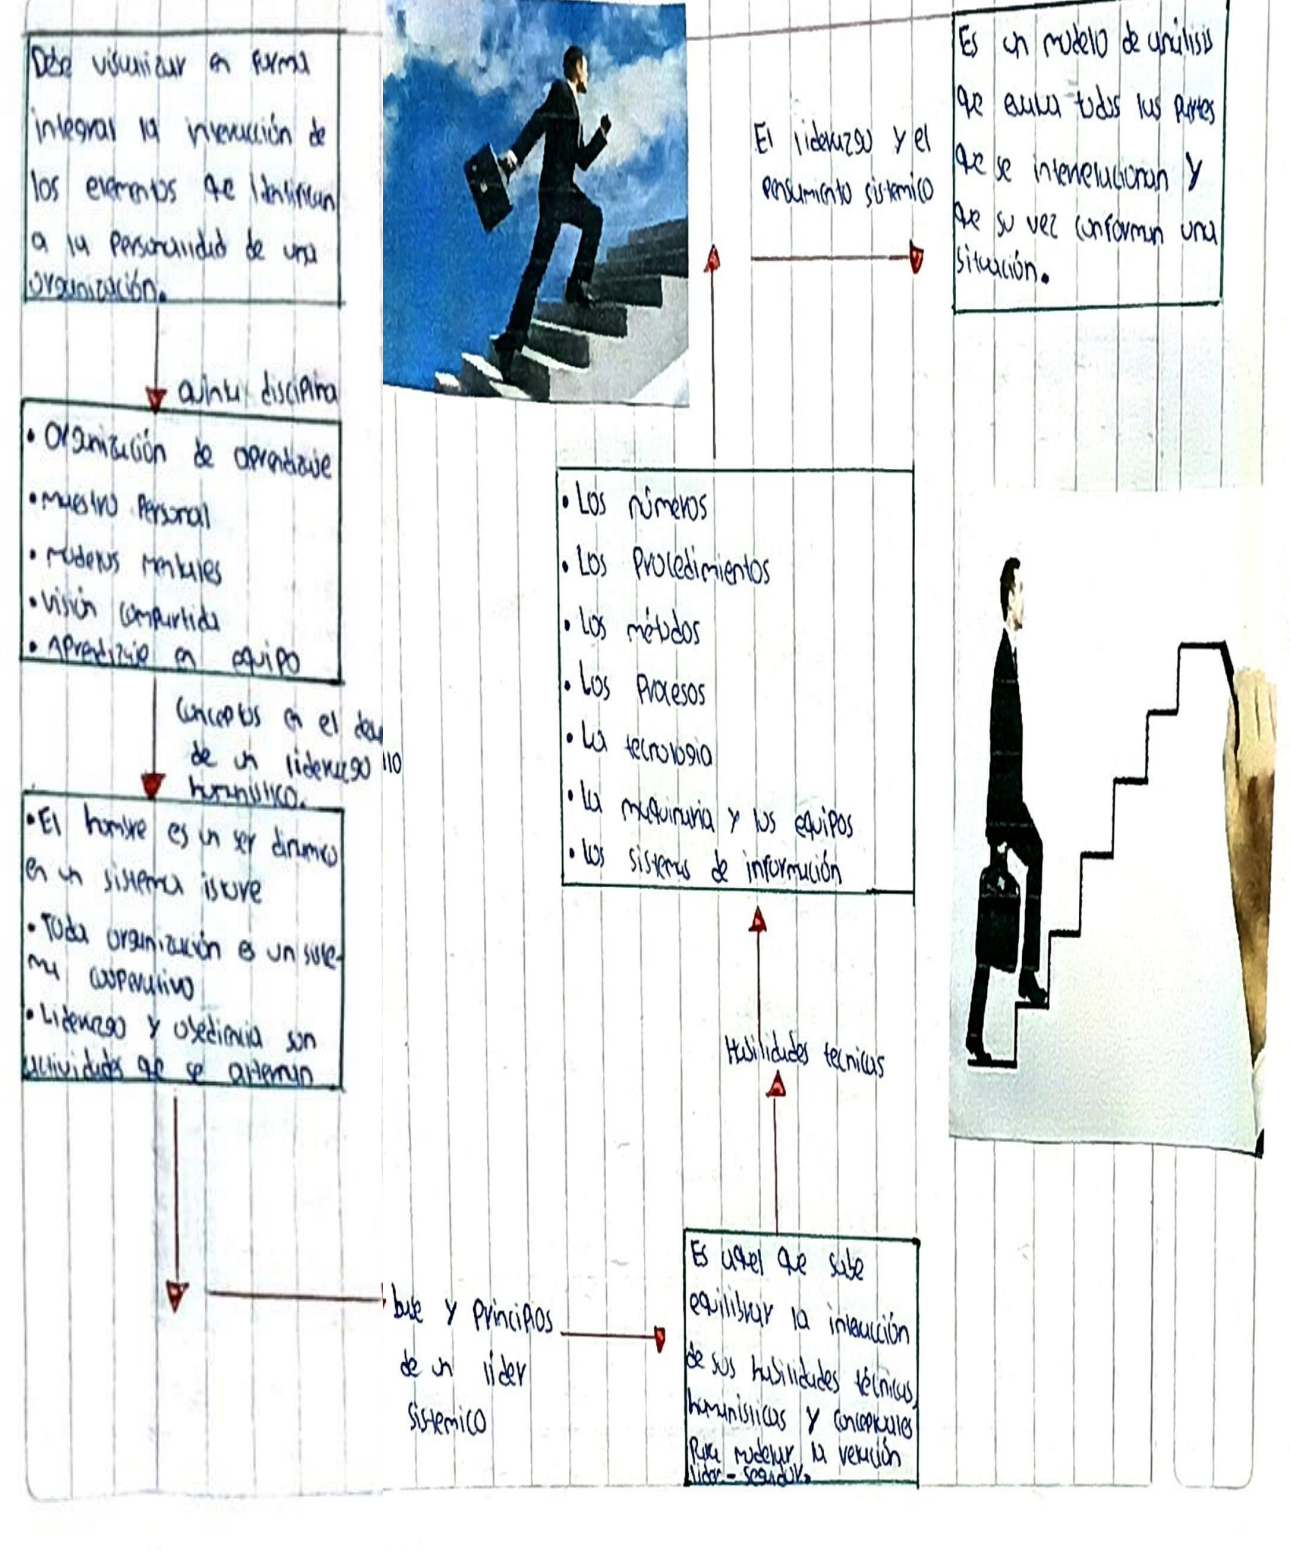 Debe visualizar en forma
integral la interacción de
los elementos que identifican
a la personalidad de una
organización.
quinta disciplina
• Organización de aprendizaje
• Maestro Personal
• modelos mentales
• visión compartida
• Aprendizaje en equipo
Conceptos en el desa
de un liderazgo llo
humanistico.
• El hombre es un ser dinamico
en un sistema
• Toda organización es un siste-
ma cooperativo
• Liderazgo y obediencia son
actividades que se alternan
base y principios
de un líder
sistemico
Es aquel que sabe
equilibrar la interacción
de sus habilidades técnicas,
humanísticas y conceptuales
Para modelar la relación
lider - seguidor.
Habilidades tecnicas
• Los números
• Los Procedimientos
• Los métodos
• Los Procesos
• La tecnologia
• La maquinaria y los equipos
• Los sistemas de información
El liderazgo y el
pensamiento sistemico
Es un modelo de análisis
que evalua todas las partes
que se interrelacionan y
que su vez conforman una
situación.